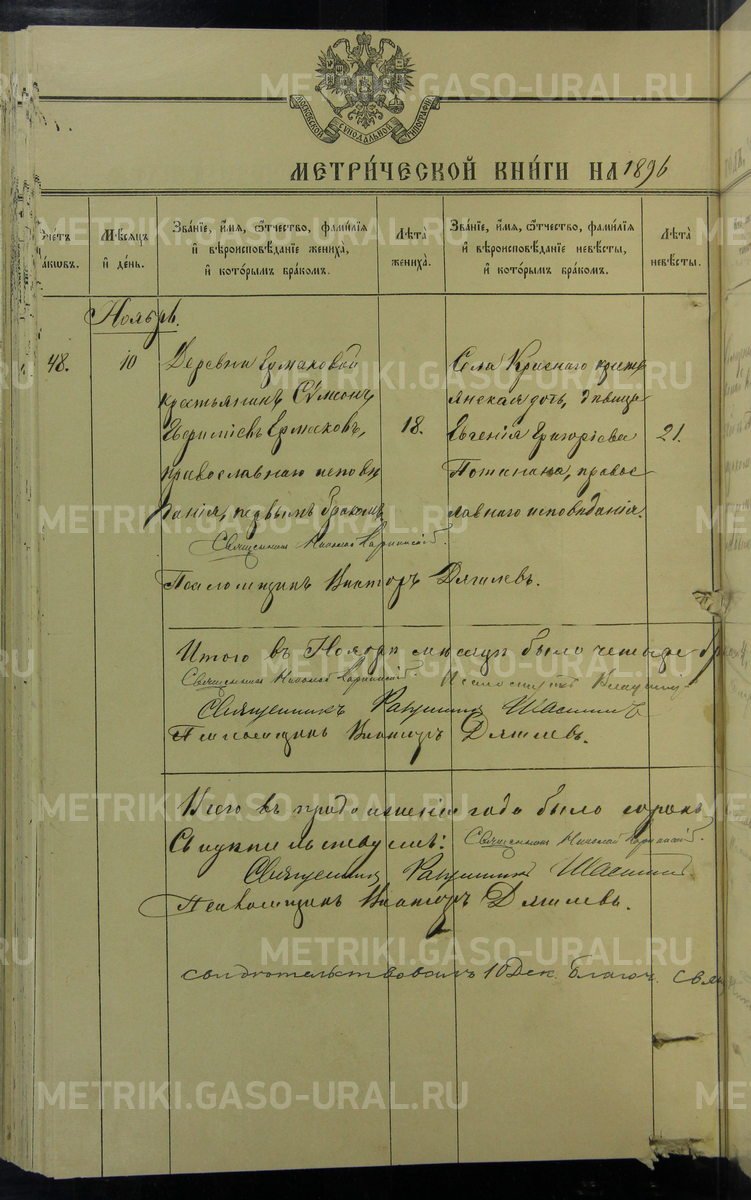 METRIKI.GASO-URAL.RU
МОСКОВСКОЙ СУНОДАЛЬНОЙ ТИПОГРАФІИ
МЕТРИЧЕСКОЙ КНИГИ НА 1896
Счетъ браковъ.
Мѣсяцъ и день.
Званіе, имя, отчество, фамилія и вѣроисповѣданіе жениха, и которымъ бракомъ.
Лѣта жениха.
Званіе, имя, отчество, фамилія и вѣроисповѣданіе невѣсты, и которымъ бракомъ.
Лѣта невѣсты.
Ноябрь.
48.
10
Деревни Ермаковой
крестьянинъ Сѵмеонъ
Ермаковъ,
православнаго исповѣ
данія, первымъ бракомъ
18.
Села Краснаго крест
янская дочь, дѣвица
Евгенія Григоріева
Потанина, правос
лавнаго исповѣданія.
21.
Священникъ Николай
Псаломщикъ Викторъ Дягилевъ.
Итого въ Ноябрѣ мѣсяцѣ было четыре
Священникъ Николай
Священникъ
Псаломщикъ Викторъ Дягилевъ.
Всего въ продолженіи года было сорокъ
Священникъ Николай
Священникъ
Псаломщикъ Викторъ Дягилевъ.
свидѣтельствовалъ 10 Дек. благоч.